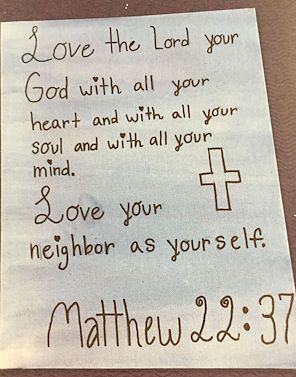 Love the Lord your
God with all your
heart and with all your
soul and with all your
mind.
Love your
neighbor as yourself.
Matthew 22:37